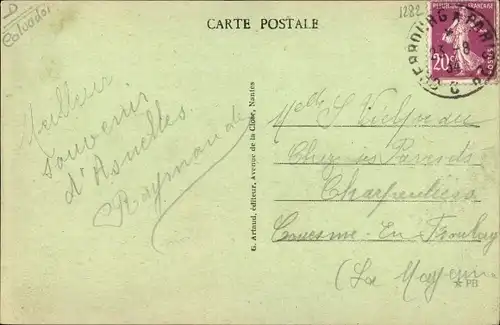 D
Calvados
CARTE POSTALE
1282
CHERBOURG A PARIS
23 - 8
34
RÉPUBLIQUE FRANÇAISE
20c
Meilleur
souvenir
d'Asnelles.
Raymonde
G. Artaud, éditeur, Avenue de la Close, Nantes
Melle S
Chez ses Parents
Charpentiers
Couesmes-En Froulay
(La Mayenne
PB